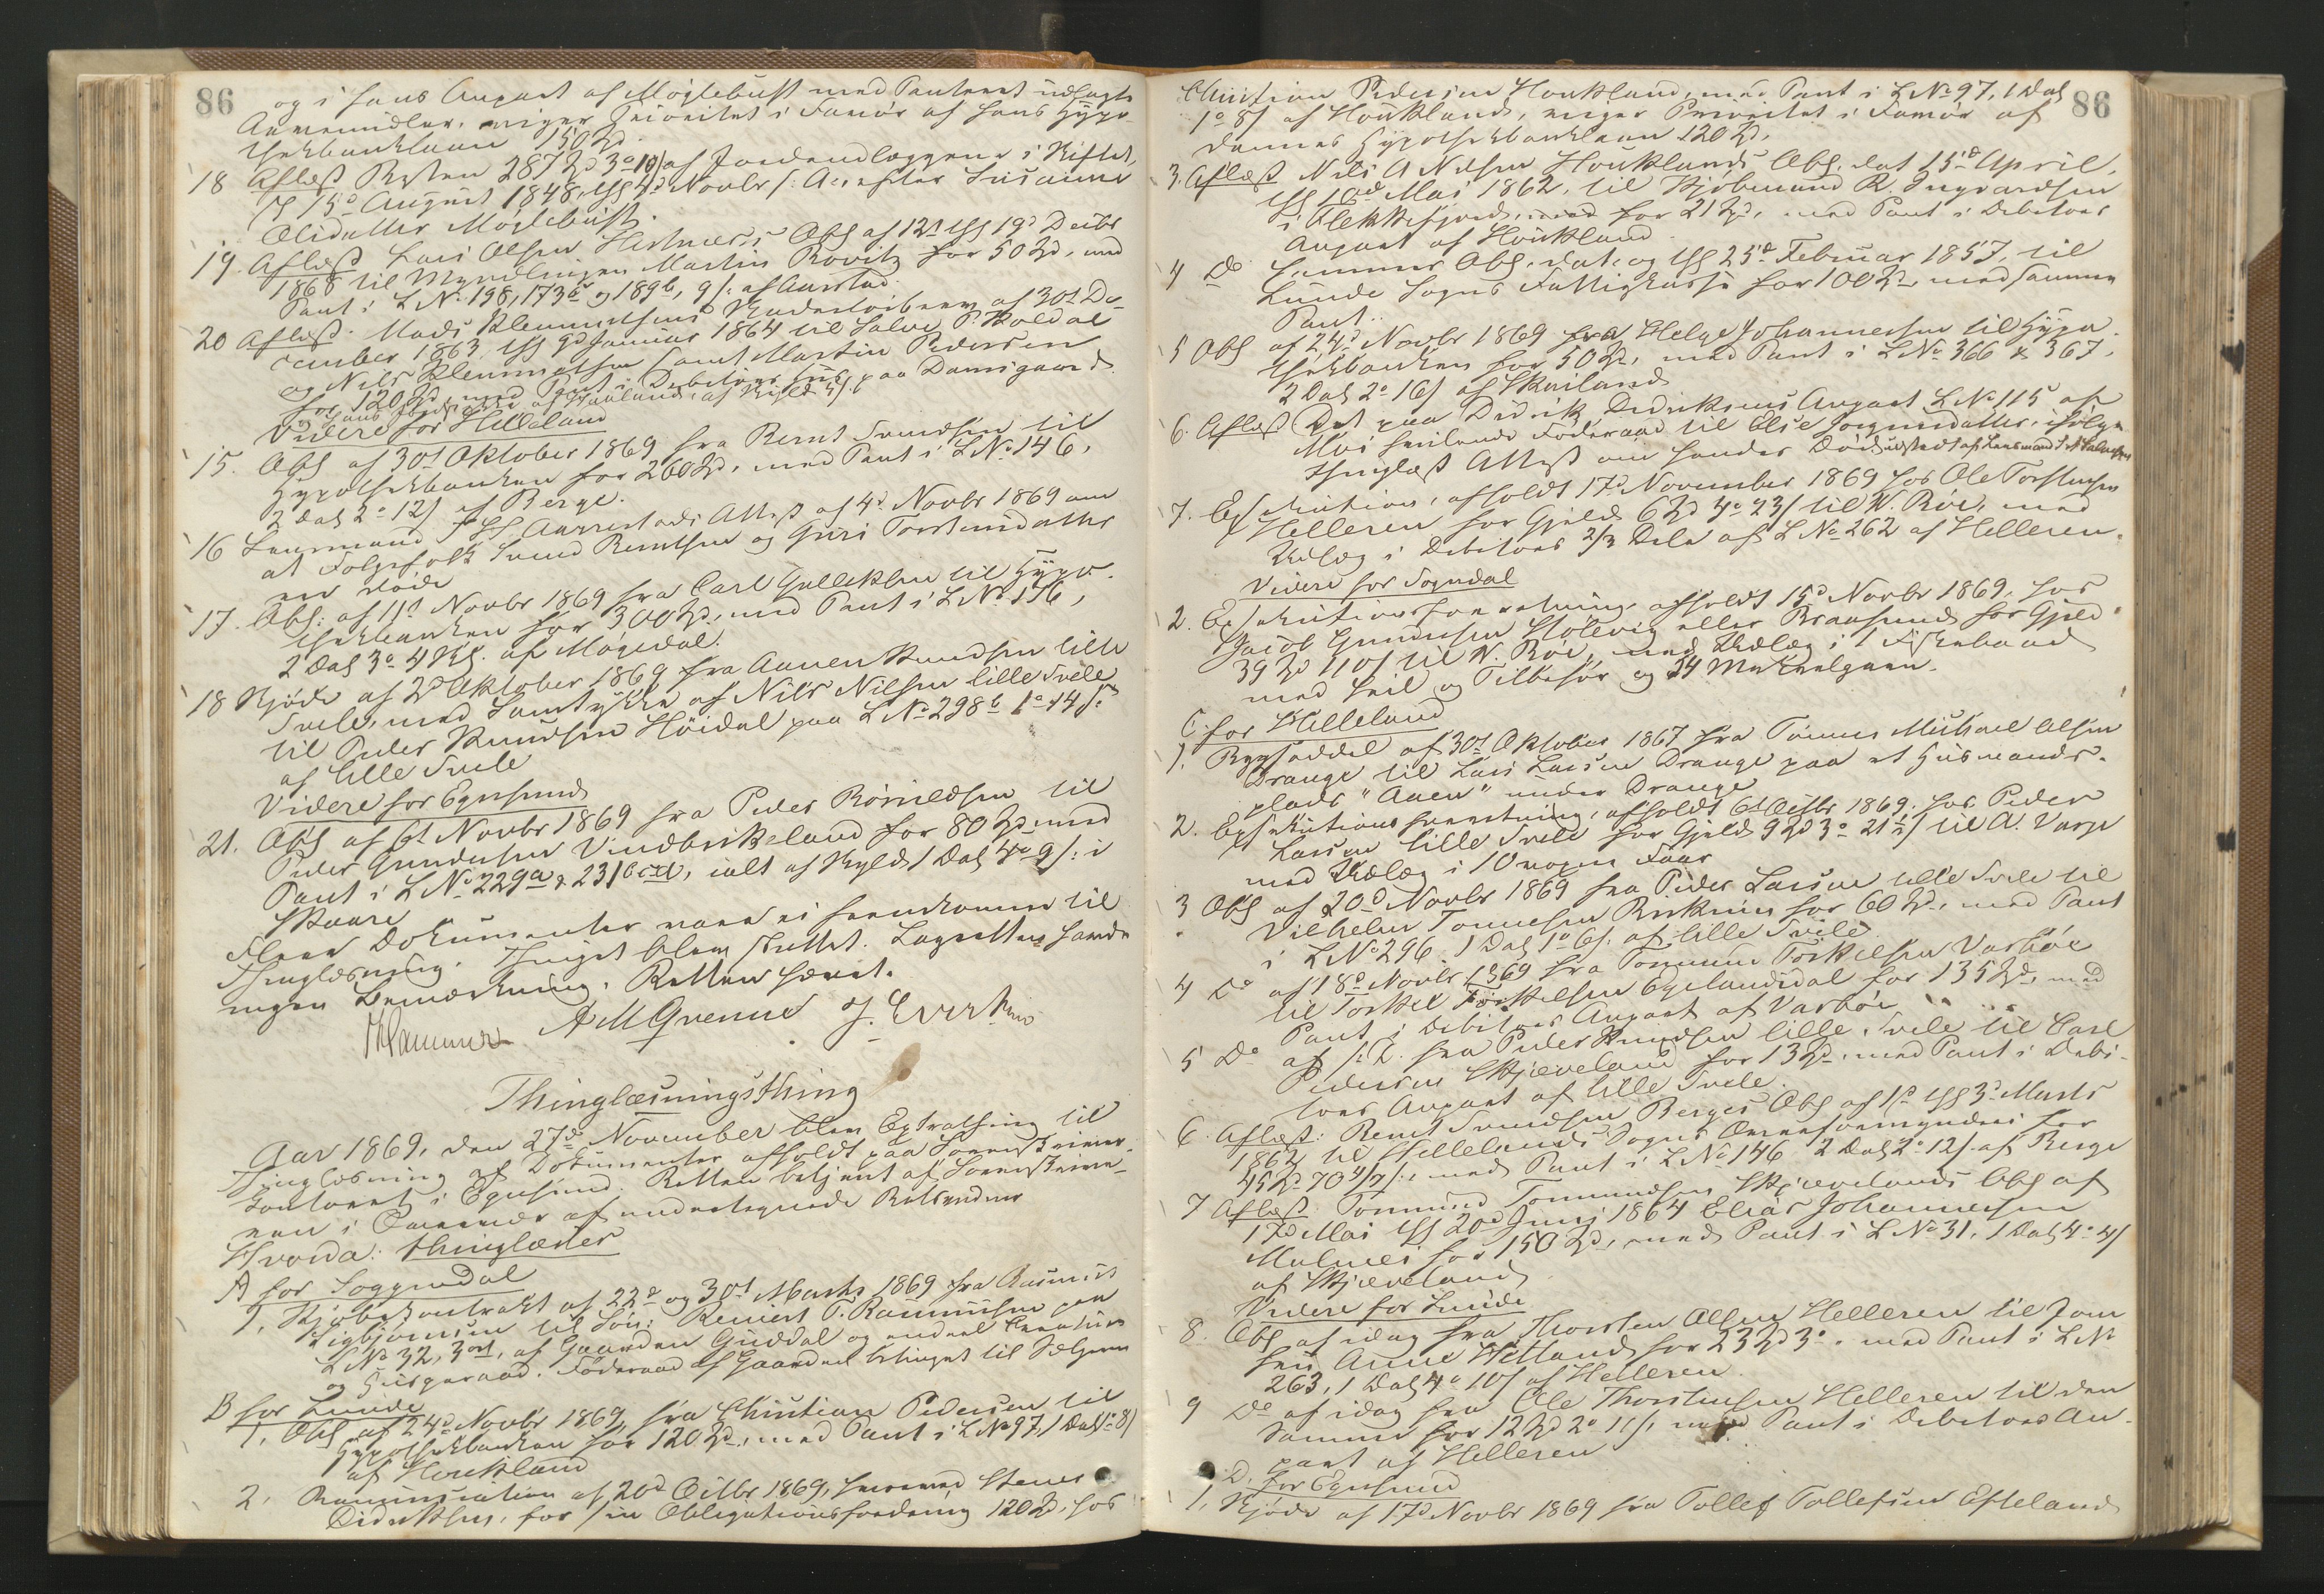 86
og i hans Anpart af Møglebust med Panteret udsagte
Annemidler. viger Prioritet i Favør af hans Hypo-
thekbanklaan 150 Spd.
18 Aflæst Resten 287 Spd 3 o 10 s af Jordudlæggene i Skiftet,
15d August 1848, thgl 4d Novbr s: A: efter Susanne
Olsdatter Møglebust.
19. Aflæst Lars Olsen Hestnæss Obl af 12t thgl 19d Decbr
1868 til Myndlingen Martin Rovitz for 50 Spd. med
Pant i L No 198, 173 b og 189 b, 9 s: af Aarstad.
20 Aflæst. Mads Klemmetsens Kaderloibrev af 30t De-
cember 1863, thgl 9d Januar 1864 til Salve P. Koldal
og Nils Klemmetsen samt Martin Pedersen
for 120 Spd, med Pant i Debitors Hus paa Damsgaard
Videre for Helleland
15. Obl af 30t Oktober 1869 fra Bernt Svendsen til
Hypothekbanken for 260 Spd. med Pant i L No 146,
2 Dal 2 o 12 s af Berge.
16 Lensmand Aarrestads Attest af 4d Novbr 1869 om
at Folgefolk Svend Berntsen og Guri Torstensdatter
er døde
17. Obl: af 11t Novbr 1869 fra Carl Gulleksen til Hypo-
thekbanken for 300 Spd., med Pant i L No 156,
2 Dal 3 o 4 s. af Møgedal.
18 Skjøde af 2d Oktober 1869 fra Aanen Knudsen lille
Svele, med Samtykke af Nils Nilsen lille Svele
til Peder Knudsen Høidal paa L No 298 b 1 o 14 s
af lille Svele
Videre for Egersund
21. Obl af 6t Novbr 1869 fra Peder Børildsen til
Peder Gundersen Vindbirkeland for 80 Spd med
Pant i L No 229 a & 231, ialt af Skyld 1 Dal 4 o 9 s: i
Skaare
Flere Dokumenter vare ei fremkomne til
Thinglæsning. Thinget blev sluttet. Lagretten havde
ingen Bemærkning. Retten hævet.
Hammer A M Grenne J. Evertsen
Thinglæsningsthing
Aar 1869, den 27d November blev Extrathing til
Thinglæsning af Dokumenter afholdt paa Sorenskriver-
kontoret i Egersund. Retten betjent af Sorenskrive-
ren i Overvær af undertegnede Retsvidner
Hvorda: thinglæstes
A for Soggendal
1. Kjøbekontrakt af 22d og 30t Marts 1869 fra Rasmus
Sigbjørnsen til Søn: Reinert T. Rasmussen paa
L No 32, 3 ort, af Gaarden Guddal og endeel Creaturer
og Husgeraad. Föderaad af Gaarden betinget til Sælgeren
B for Lunde
1. Obl af 24d Novbr 1869, fra Christian Pedersen til
Hypothekbanken for 120 Spd., med Pant i L No 97, 1 Dal 1 o 8 s
af Houkland
2. Kommunication af 20d Octbr 1869, hvorved Stener
Didriksen, for sin Obligationsfordring 120 Spd. hos
86
Christian Pedersen Houkland, med Pant i L No 97, 1 Dal
1 o 8 s af Houkland, viger Prioritet i Favør af
dennes Hypothekbanklaan 120 Spd.
3. Aflæst Nils A Nilsen Houklands Obl. dat 15d April,
thgl 16d Mai 1862, til Kjøbmand R. Ingvardsen
i Flekkefjord, med for 21 Spd, med Pant i Debitors
Anpart af Houkland
4 Do Sammes Obl. dat. og thgl 25d Februar 1857, til
Lunde Sogns Fattigkasse for 100 Spd med samme
Pant.
5 Obl af 24d Novbr 1869 fra Helge Johannesen til Hypo-
thekbanken for 50 Spd, med Pant i L No 366 & 367,
2 Dal 2 o 16 s af Skailand
6. Aflæst Det paa Didrik Didriksens Anpart L No 115 af
Moi hvilende Föderaad til Else Jorgensdatter, ifølge
thinglæst Attest om hendes Död, udstedt af Lensmand
7. Exekution, afholdt 17d November 1869 hos Ole Torstensen
Helleren for Gjeld 6 Spd 4 o 23 s til N. Röe, med
Udlæg i Debitors 2/3 Dele af L No 262 af Helleren.
Videre for Sogndal
2. Exekutionsforretning afholdt 15d Novbr 1869, hos
Jacob Gundersen Stölevig eller Braasund for Gjeld
39 Spd 110 s til N. Röe, med Udlæg i 1 Fiskebaad
med Seil og Tilbehör og 14 Makrelgarn.
C. for Helleland
1. Bygseddel af 30t Oktober 1867 fra Tönnes Michael Olsen
Drange til Lars Larsen Drange paa et Husmands-
plads "Aaen" under Drange
2. Exekutionsforretning, afholdt 6t Octbr 1869. hos Peder
Larsen lille Svele for Gjeld 9 Spd 3 o 21 s til A. Varpe
med Udlæg i 10 voxne Faar
3 Obl af 20d Novbr 1869 fra Peder Larsen lille Svele til
Vilhelm Tönnesen Birknes for 60 Spd, med Pant
i L No 296. 1 Dal 1 o 6 s. af lille Svele
4 Do af 18d Novbr 1869 fra Tönnes Törkelsen Varböe
til Torkel Törkelsen Egelandsdal for 135 Spd, med
Pant i Debitors Anpart af Varböe
5 Do af s: D. fra Peder Knudsen lille Svele til Carl
Pedersen Skjæveland for 13 Spd. med Pant i Debi-
tors Anpart af lille Svele.
6. Aflæst: Bernt Svendsen Berges Obl af 1t thgl 3d Marts
1862 til Hellelands Sogns Overformynderi for
45 Spd 70 4/7 s:, med Pant i L No 146 2 Dal 2 o 12 s. af Berge
7 Aflæst. Tormund Tormundsen Skjævelands Obl af
17d Mai thgl 20d Juni 1864 Elias Johannesen
Malmei for 150 Spd, med Pant i L No 31, 1 Dal 4 o 4 s
af Skjæveland
Videre for Lunde
8. Obl af idag fra Thorsten Olsen Helleren til Jom-
fru Anne Hetland for 23 Spd 3 o. med Pant i L No
263, 1 Dal 4 o 10 s af Helleren
9 Do af idag fra Ole Thorstensen Helleren til den
Samme for 12 Spd 2 o 11 s, med Pant i Debitors An-
part af Helleren
D. for Egersund
1. Skjöde af 17d Novbr 1869 fra Tollef Tollefsen Efteland